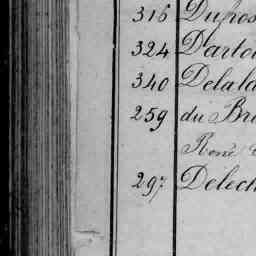 316 Dufros
324 Dartoi
340 Delala
259 du Bri
René
297 Delech